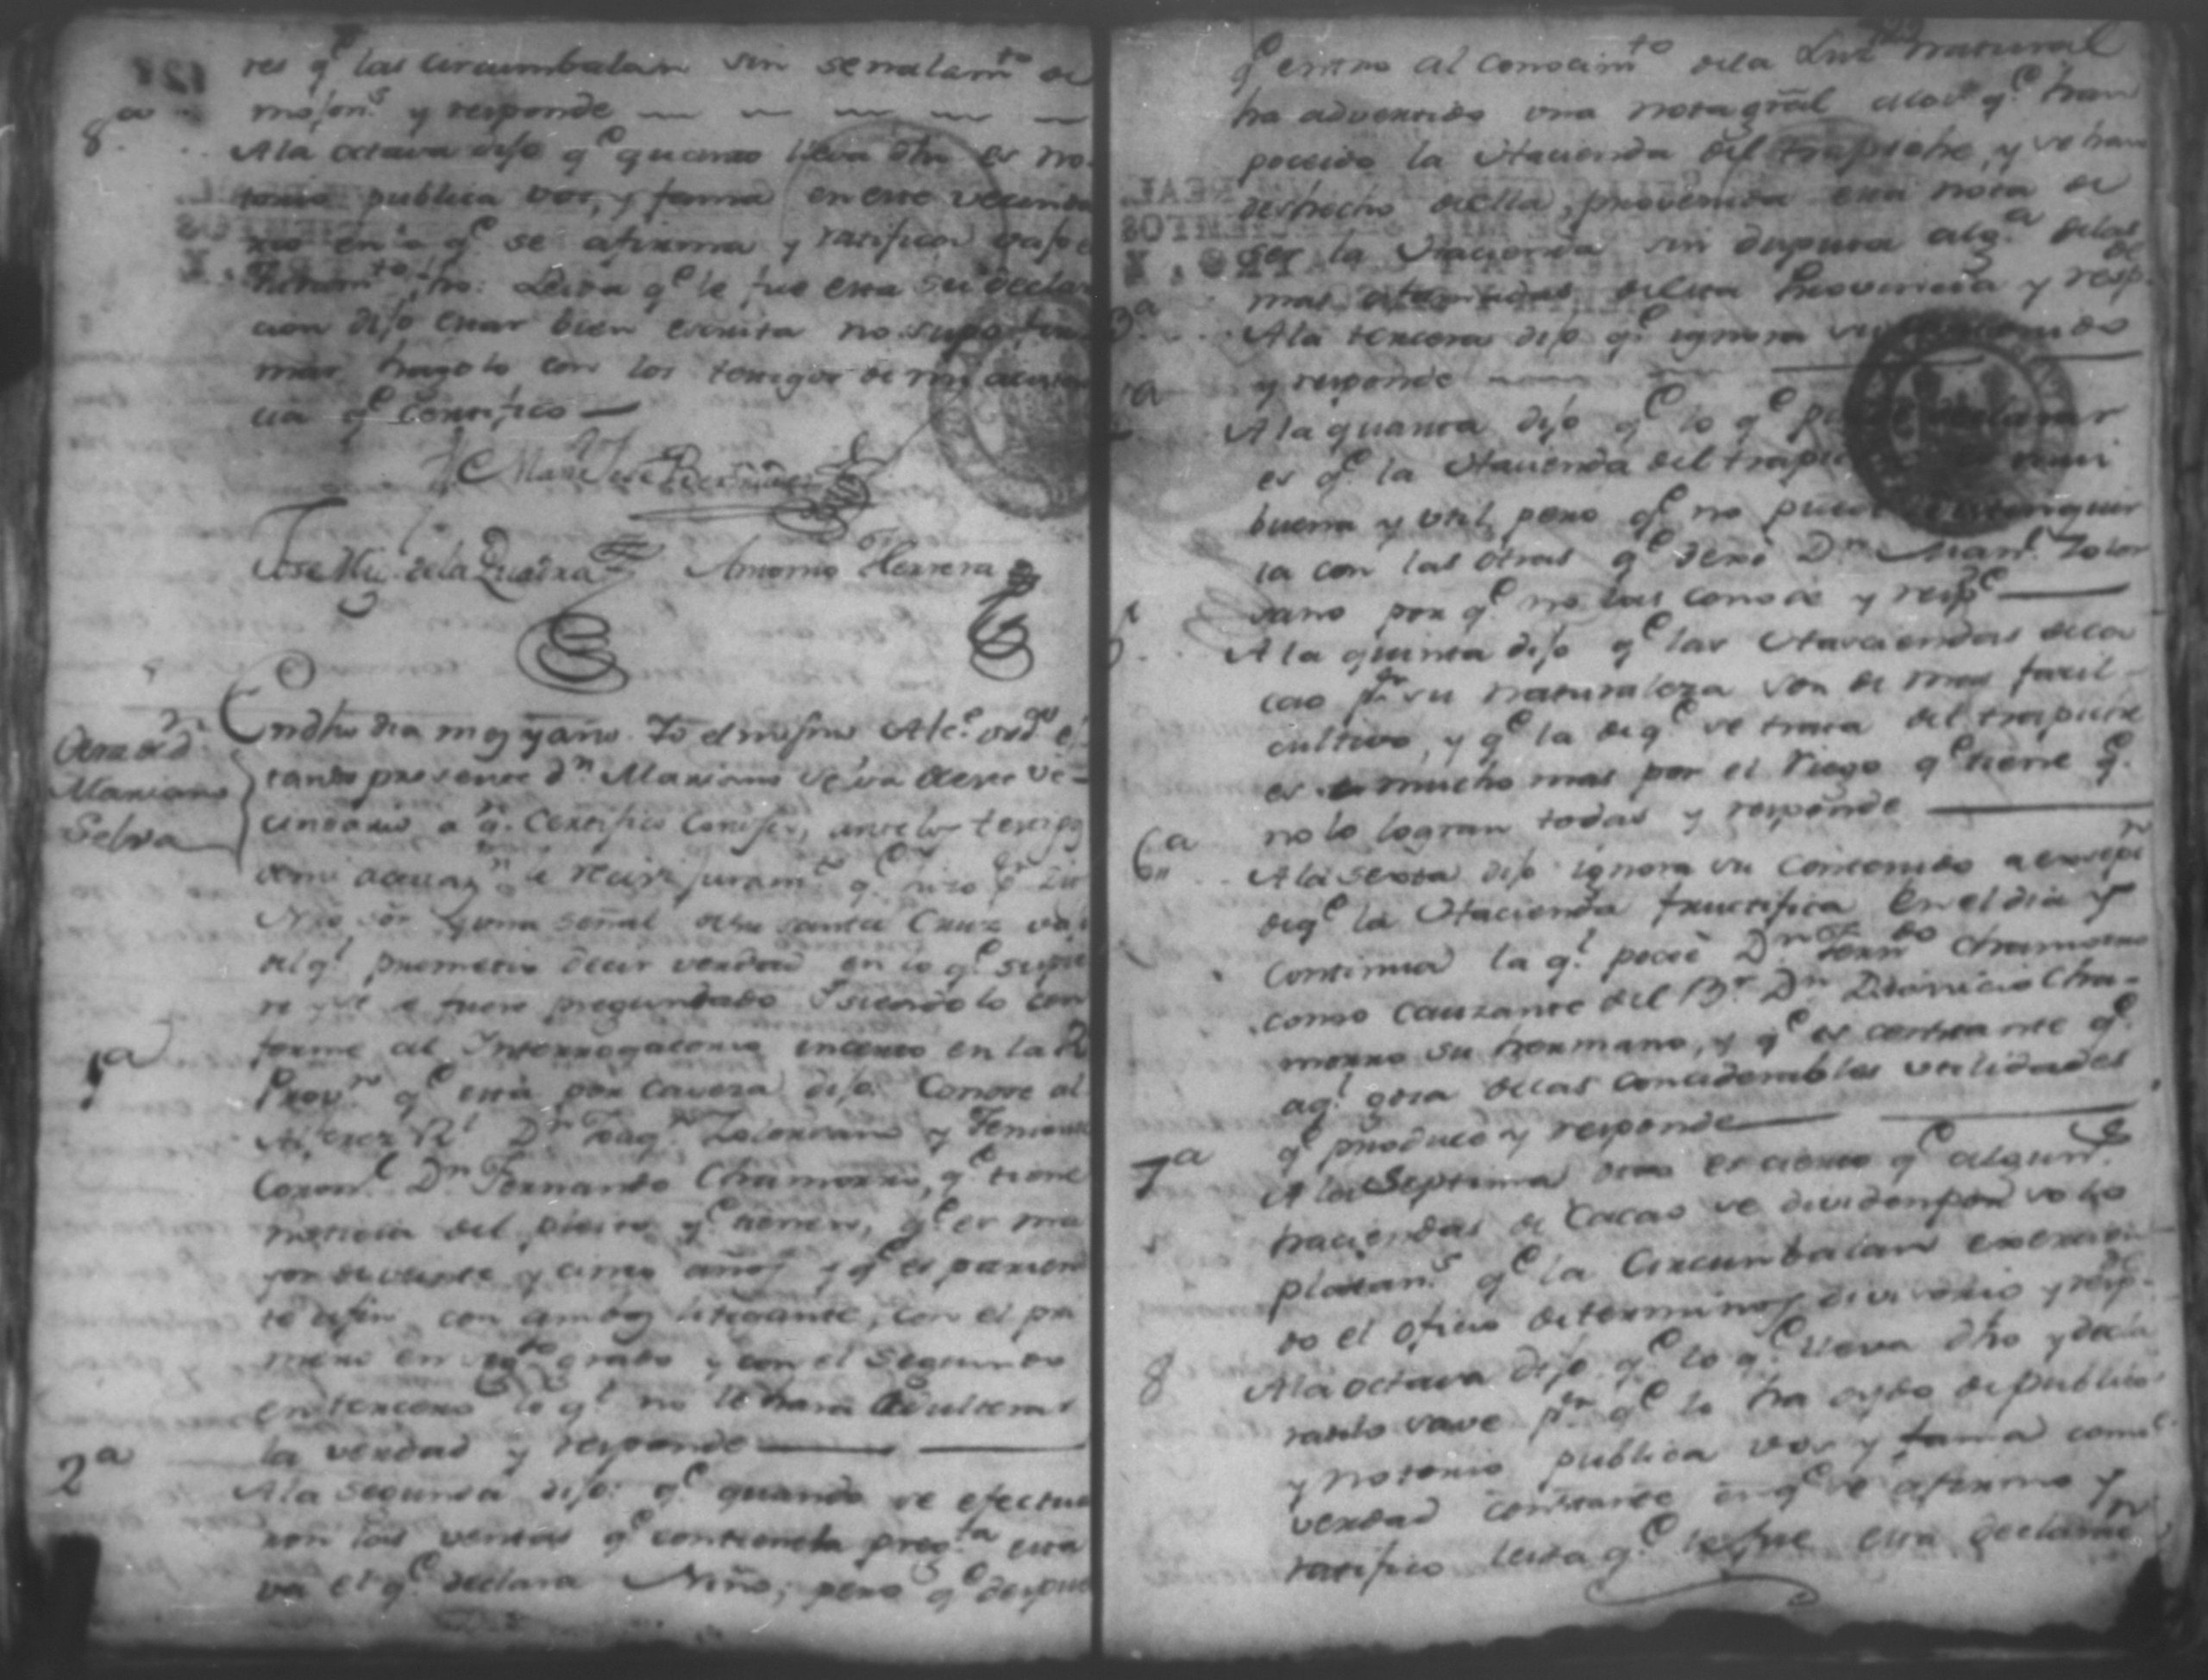 res q.e las circumbalan sin señalam.to de
mojon.s y responde
8.a
A la octava dijo q.e quanto lleva dho es no-
torio publica vos, y fama en este vecinda
rio en q.e se afirma y ratifica vajo
Juram.to fho: Leida q.e le fue esta su declara
cion dijo estar bien escrita no supo fir
mar hagolo con los testigos de mi asisten
cia q.e certifico
Jose Mig.l de la Quadra Antonio Herrera
Otra de D.n
Mariano
Selva
En dho dia mes y año. Yo el mismo Alc.e ord.o es
tando presente D.n Mariano Selva de este ve-
cindario a q.n certifico conosco, ante los testigos
de mi asistencia le recivi juram.to q.e hizo p.r Dios
Nro Sor y una señal de su santa Cruz vajo
del q.l prometio decir verdad en lo q.e supie
re y se le fuere preguntado y siendolo con
forme al Interrogatorio incerto en la R.l
1.a
Prov.n q.e está por cavesa dijo: Conose al
Alferez R.l D.n Joaq.n Solorsano y Teniente
Coron.l D.n Fernando Chamorro, q.e tiene
noticia del pleito q.e tienen, q.e es ma
yor de veinte y cinco años y q.e es parien
te afin con ambos litigantes, con el pri
mero en seg.do grado y con el segundo
en tercero lo q.l no le hará adulterar
la verdad y responde
2.a
A la segunda dijo: q.e quando se efectua
ron las ventas q.e contiene la preg.ta esta
va el q.e declara Niño; pero q.e despues
q.e entro al conocim.to de la Luz natural
ha advertido una nota gral de los q.e han
poceido la Hacienda del trapiche, y se han
deshecho de ella, provenida esta nota de
ser la Hacienda sin disputa alg.a de las
mas de esta Provincia y resp.de
3.a
A la tercera dijo q.e ignora su contenido
y responde
4.a
A la quarta dijo q.e lo q.e puede declarar
es q.e la Hacienda del trapiche es mui
buena y util, pero q.e no puede distinguir
la con las otras q.e tenia D.n Man.l Solor
sano por q.e no las conoce y resp.e
5.
A la quinta dijo q.e las Haciendas de ca
cao p.r su naturaleza son de mas facil
cultivo, y q.e la de q.e se trata del trapiche
es mucho mas por el riego q.e tiene q.e
no lo logran todas y responde
6.a
A la sexta dijo ignora su contenido a excepcion
de q.e la Hacienda fructifica en el dia y
continua la q.l poceé D.n Fern.do Chamorro
como cauzante del B.r D.n Dionicio Cha-
morro su hermano, y q.e es constante q.e
aq.l goza de las conciderables utilidades
q.e produce y responde
7.a
A la Septima dijo es cierto q.e algun.s
haciendas de Cacao se dividen por solo
platan.s q.e la Circunbalan exercien
do el oficio de terminos divisorio y resp.de
8
A la octava dijo q.e lo q.e lleva dho y decla
rado save p.r q.e lo ha oydo de publico
y notorio publica vos y fama como
verdad constante en q.e se afirmo y
ratifico leida q.e le fue esta declaras.n